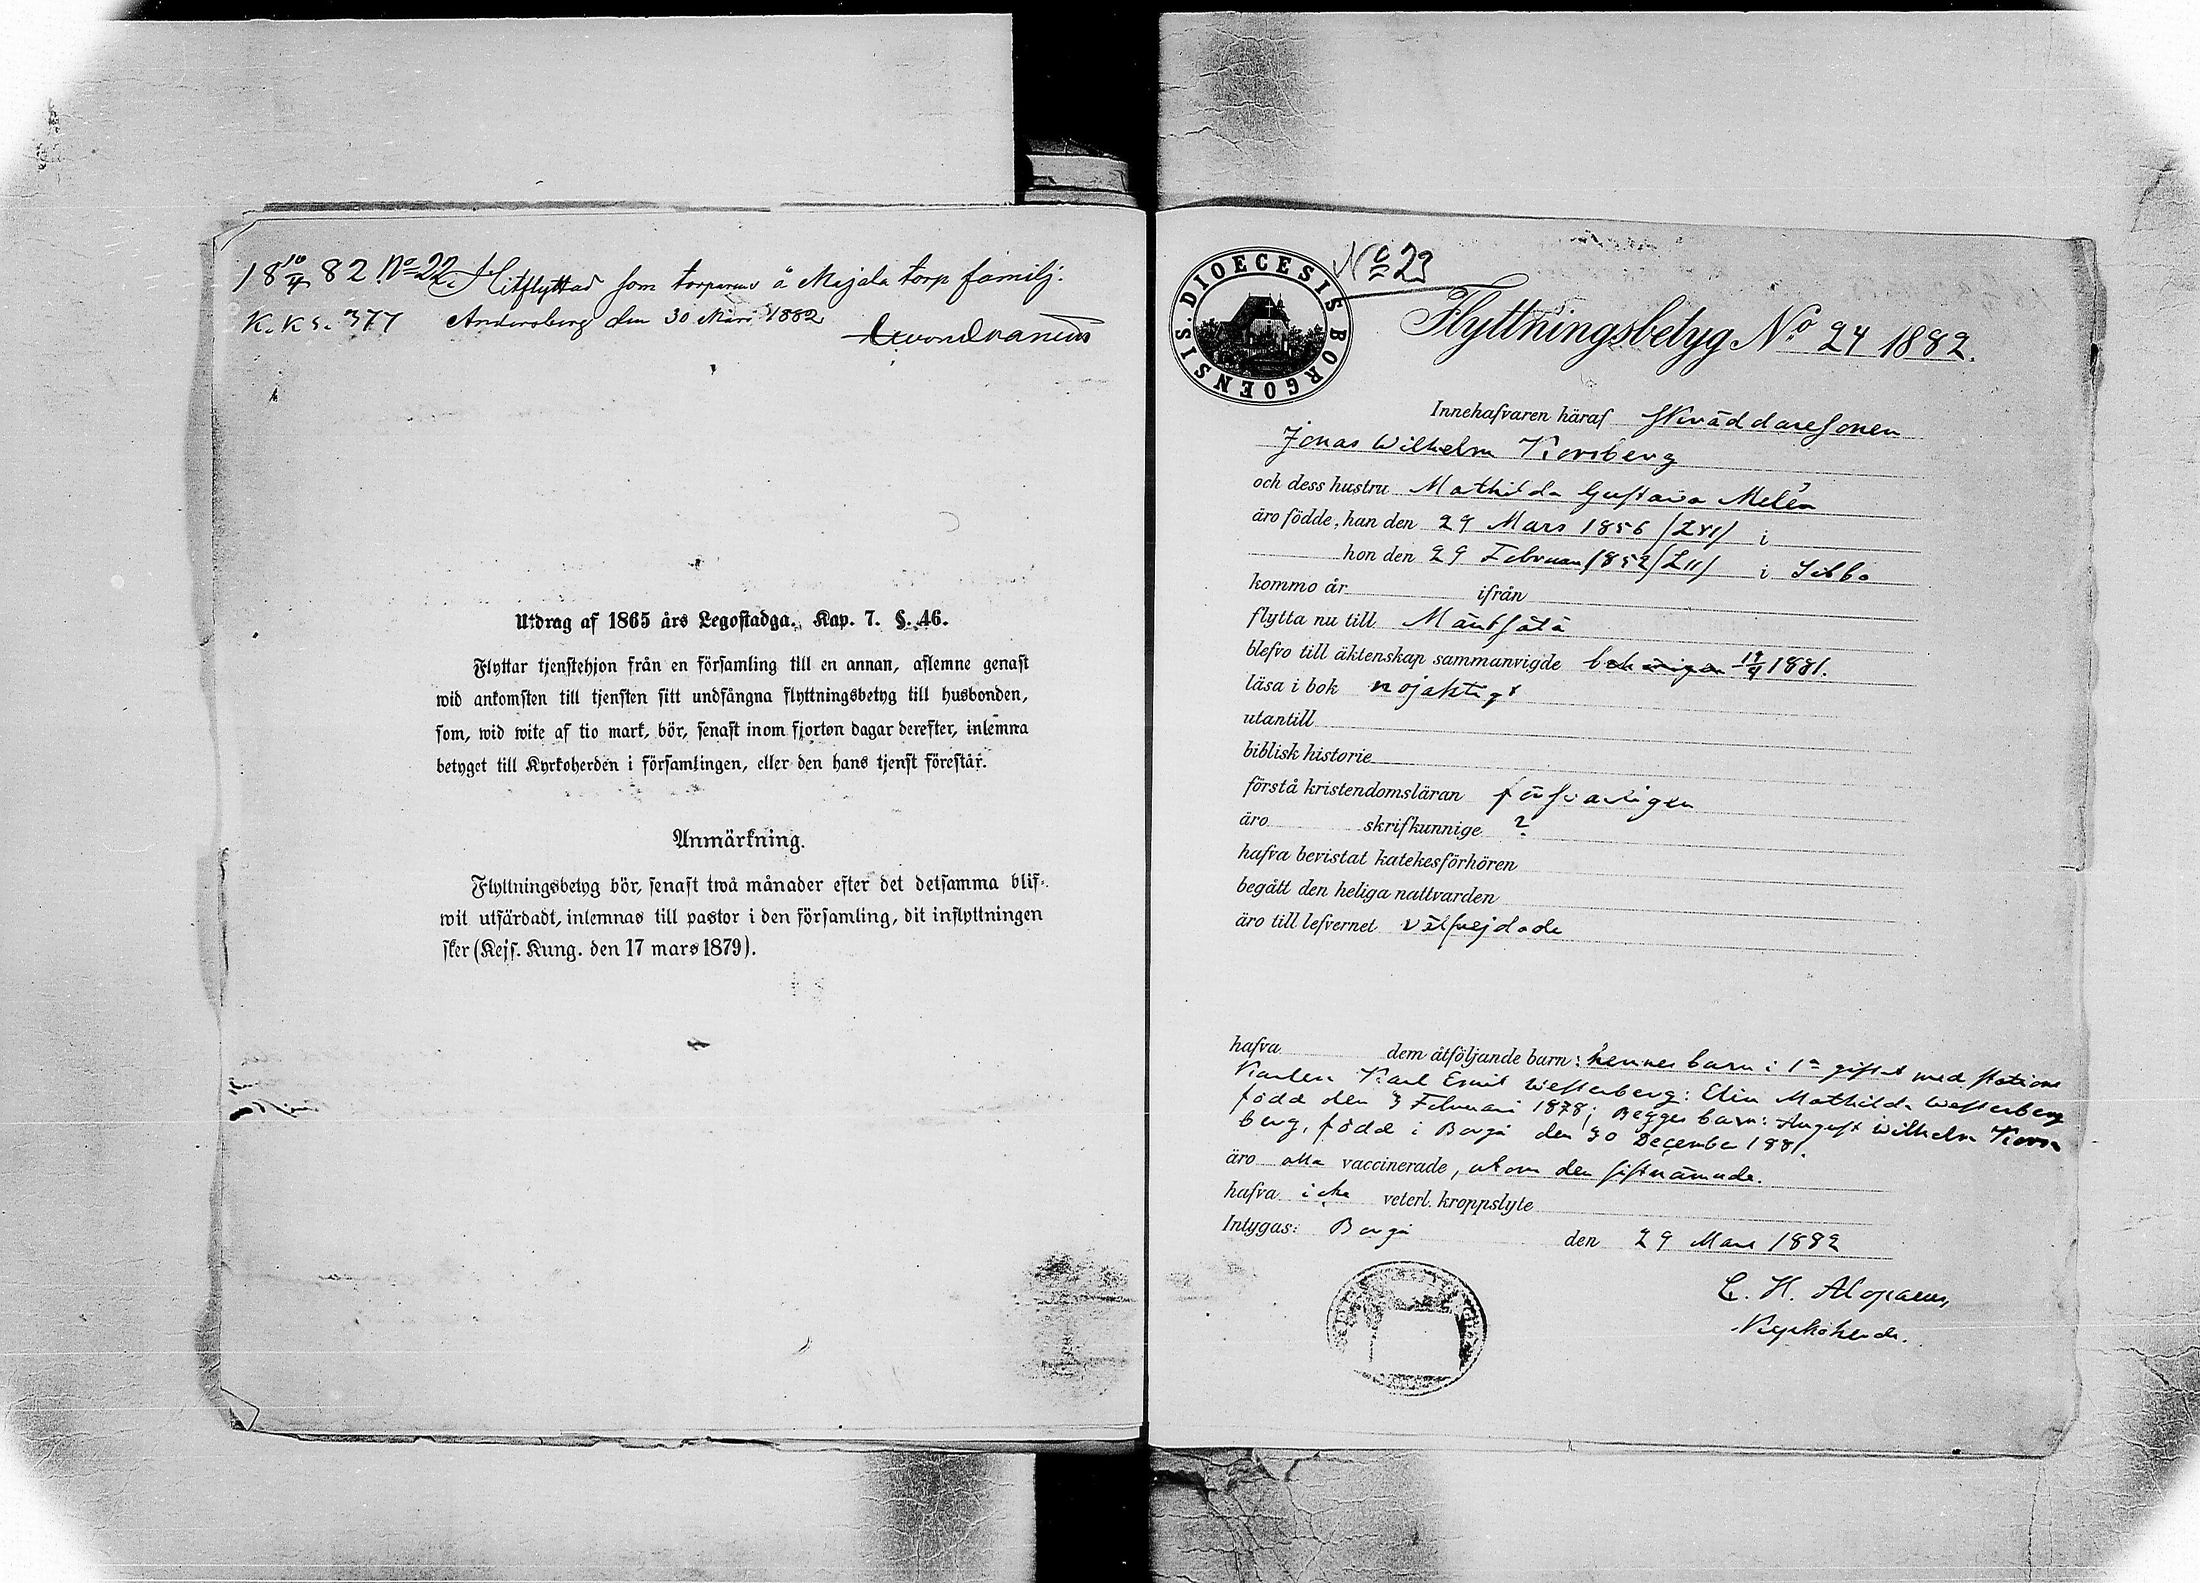 18 10/4 82 No 22. Hitflyttad som torparens å Majala torp familj.
K. K. S. 377 Andersberg den 30 Mars 1882
Utdrag af 1865 års Legostadga. Kap. 7. §. 46.
Flyttar tjenstehjon från en församling till en annan, aflemne genast
wid ankomsten till tjensten sitt undfångna flyttningsbetyg till husbonden,
som, wid wite af tio mark, bör, senast inom fjorton dagar derefter, inlemna
betyget till Kyrkoherden i församlingen, eller den hans tjenst förestår.
Anmärkning.
Flyttningsbetyg bör, senast twå månader efter det detsamma blif-
wit utfärdadt, inlemnas till pastor i den församling, dit inflyttningen
sker (Kejs. Kung. den 17 mars 1879).
DIOECESIS BORGOENSIS.
No 23
Flyttningsbetyg No. 24 1882.
Innehafvaren häraf Skräddaresonen
Jonas Wilhelm Korsberg
och dess hustru Mathilda Gustava Melén
äro födde, han den 29 Mars 1856 /LVI/ i
hon den 29 Februari 1852 /LII/ i Sibbo
kommo år ifrån
flytta nu till Mäntsälä
blefvo till äktenskap sammanvigde behörigen 19/4 1881.
läsa i bok nöjaktigt
utantill
biblisk historie
förstå kristendomsläran försvarligen
äro skrifkunnige ?
hafva bevistat katekesförhören
begått den heliga nattvarden
äro till lefvernet välfrejdade
hafva dem åtföljande barn: hennes barn i 1a giftet med stations
Karlen Karl Emil Westerberg: Elin Mathilda Westerberg
född den 3 Februari 1878; Begges barn: August Wilhelm Kors-
berg, född i Borgå den 30 December 1881.
äro alla vaccinerade, utom den sistnämnde.
hafva icke veterl. kroppslyte
Intygas: Borgå den 29 Mars 1882
C. H. Alopaeus,
Kyrkoherde.